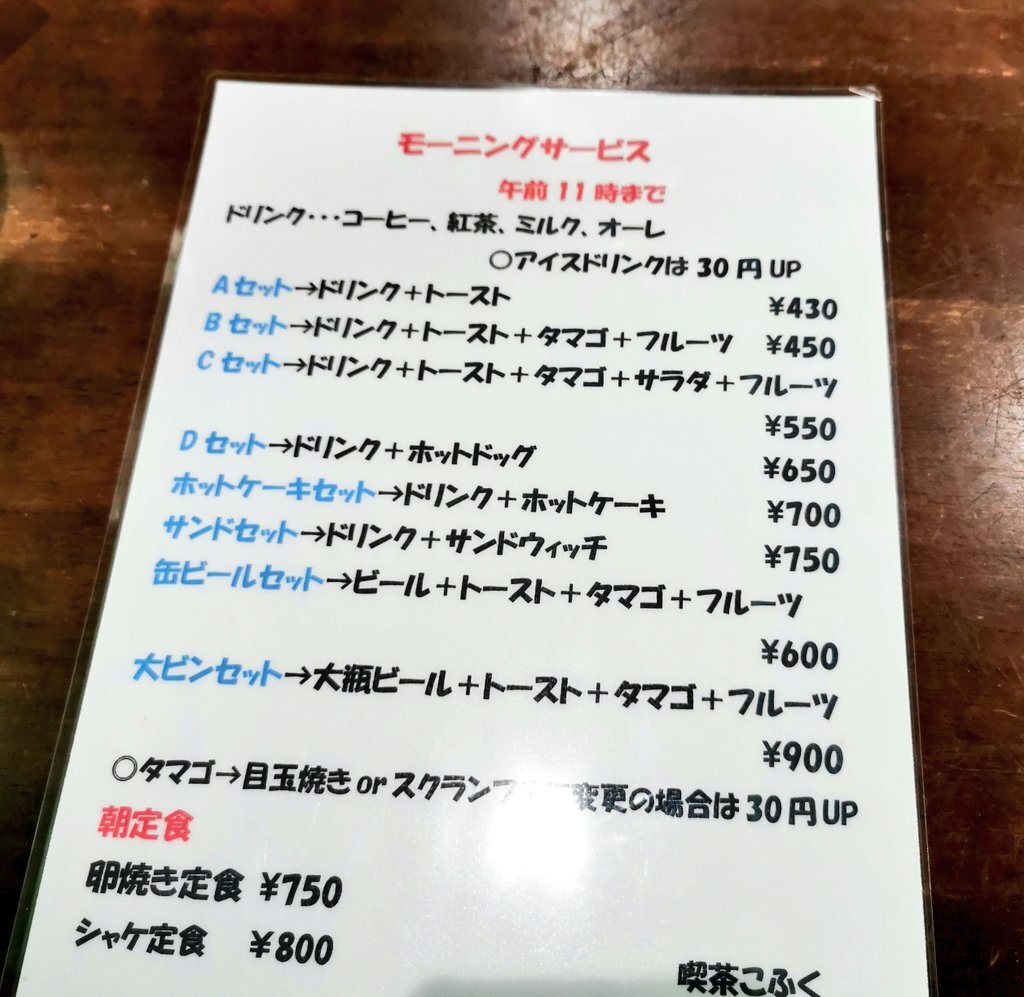 モーニングサービス
午前11時まで
ドリンク・・・コーヒー、紅茶、ミルク、オーレ
○アイスドリンクは30円UP
Aセット→ドリンク+トースト ¥430
Bセット→ドリンク+トースト+タマゴ+フルーツ ¥450
Cセット→ドリンク+トースト+タマゴ+サラダ+フルーツ
¥550
Dセット→ドリンク+ホットドッグ ¥650
ホットケーキセット→ドリンク+ホットケーキ ¥700
サンドセット→ドリンク+サンドウィッチ ¥750
缶ビールセット→ビール+トースト+タマゴ+フルーツ
¥600
大ビンセット→大瓶ビール+トースト+タマゴ+フルーツ
¥900
○タマゴ→目玉焼きorスクランブ 変更の場合は30円UP
朝定食
卵焼き定食 ¥750
シャケ定食 ¥800
喫茶こふく